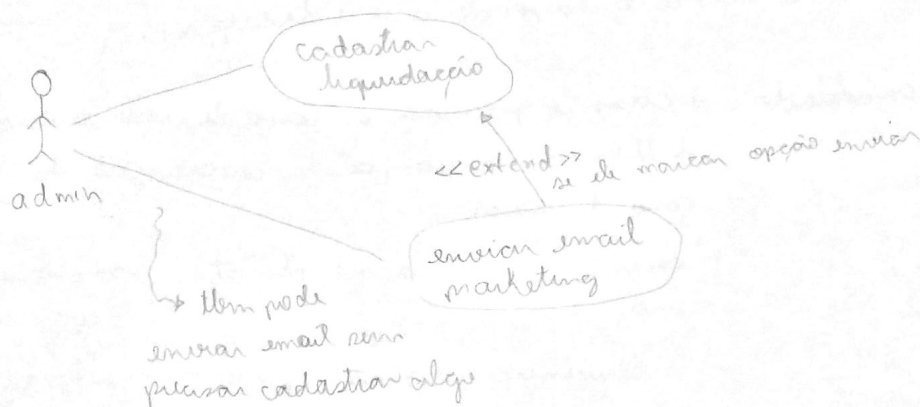 cadastrar
liquidação
admin
<<extend>>
se ele marcar opção enviar
enviar email
marketing
tbm pode
enviar email sem
precisar cadastrar algo